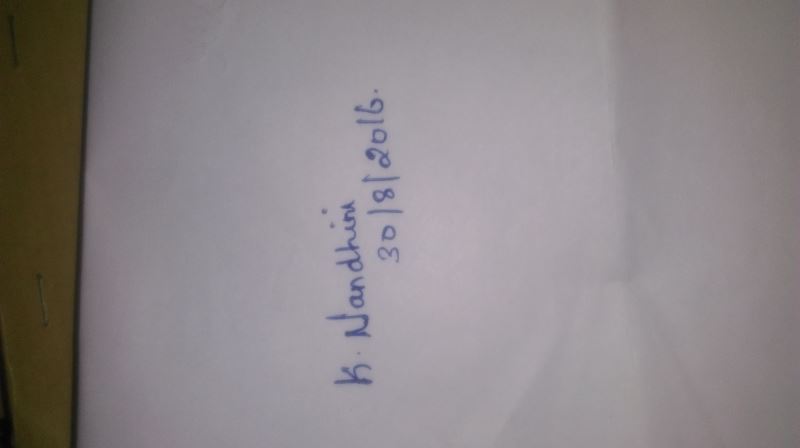 K. Nandhini
30/8/2016.